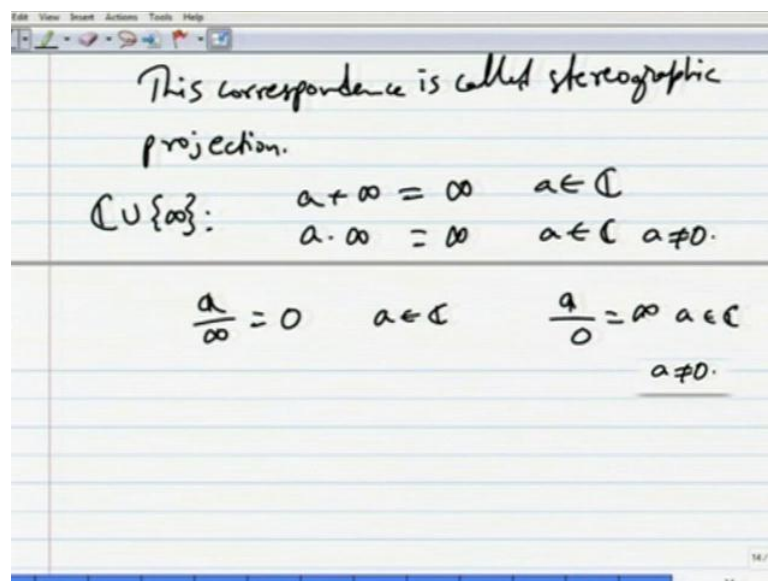 Edit View Insert Actions Tools Help
This correspondence is called stereographic
projection.
ℂ∪{∞}: a+∞ = ∞ a∈ℂ
a.∞ = ∞ a∈ℂ a≠0.
a/∞ = 0 a∈ℂ a/0 = ∞ a∈ℂ
a≠0.
14/